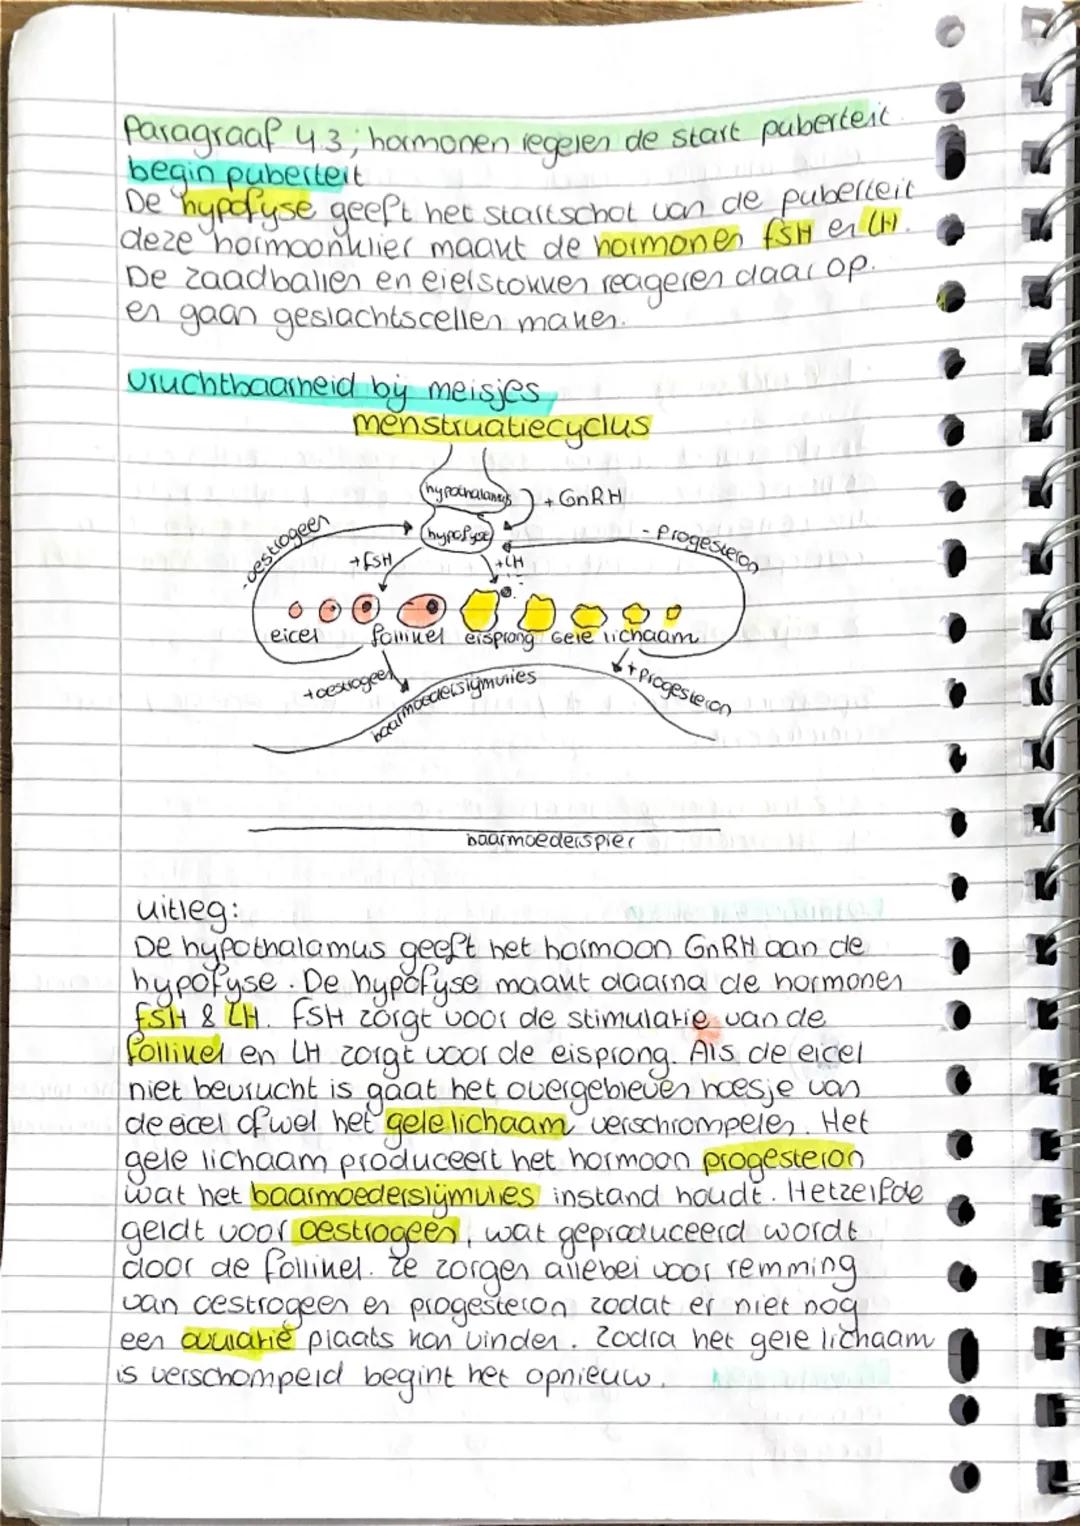 Paragraaf 4.3; hormonen regelen de start puberteit
begin puberteit
De hypofyse geeft het startschot van de puberteit
deze hormoonklier maakt de hormonen FSH en LH.
De zaadballen en eierstokken reageren daar op.
en gaan geslachtscellen maken.
Vruchtbaarheid bij meisjes
menstruatiecyclus
hypothalamus
+ GnRH
hypofyse
- oestrogeen
- Progesteron
+ FSH
+ LH
eicel follikel eisprong Gele lichaam
+ oestrogeen
baarmoederslijmvlies
+ Progesteron
baarmoederspier
uitleg:
De hypothalamus geeft het hormoon GnRH aan de
hypofyse. De hypofyse maakt daarna de hormonen
FSH & LH. FSH zorgt voor de stimulatie van de
follikel en LH zorgt voor de eisprong. Als de eicel
niet bevrucht is gaat het overgebleven hoesje van
de eicel ofwel het gele lichaam verschrompelen. Het
gele lichaam produceert het hormoon progesteron
wat het baarmoederslijmvlies instand houdt. Hetzelfde
geldt voor oestrogeen, wat geproduceerd wordt
door de follikel. Ze zorgen allebei voor remming
van oestrogeen en progesteron zodat er niet nog
een ovulatie plaats kan vinden. Zodra het gele lichaam
is verschompeld begint het opnieuw.